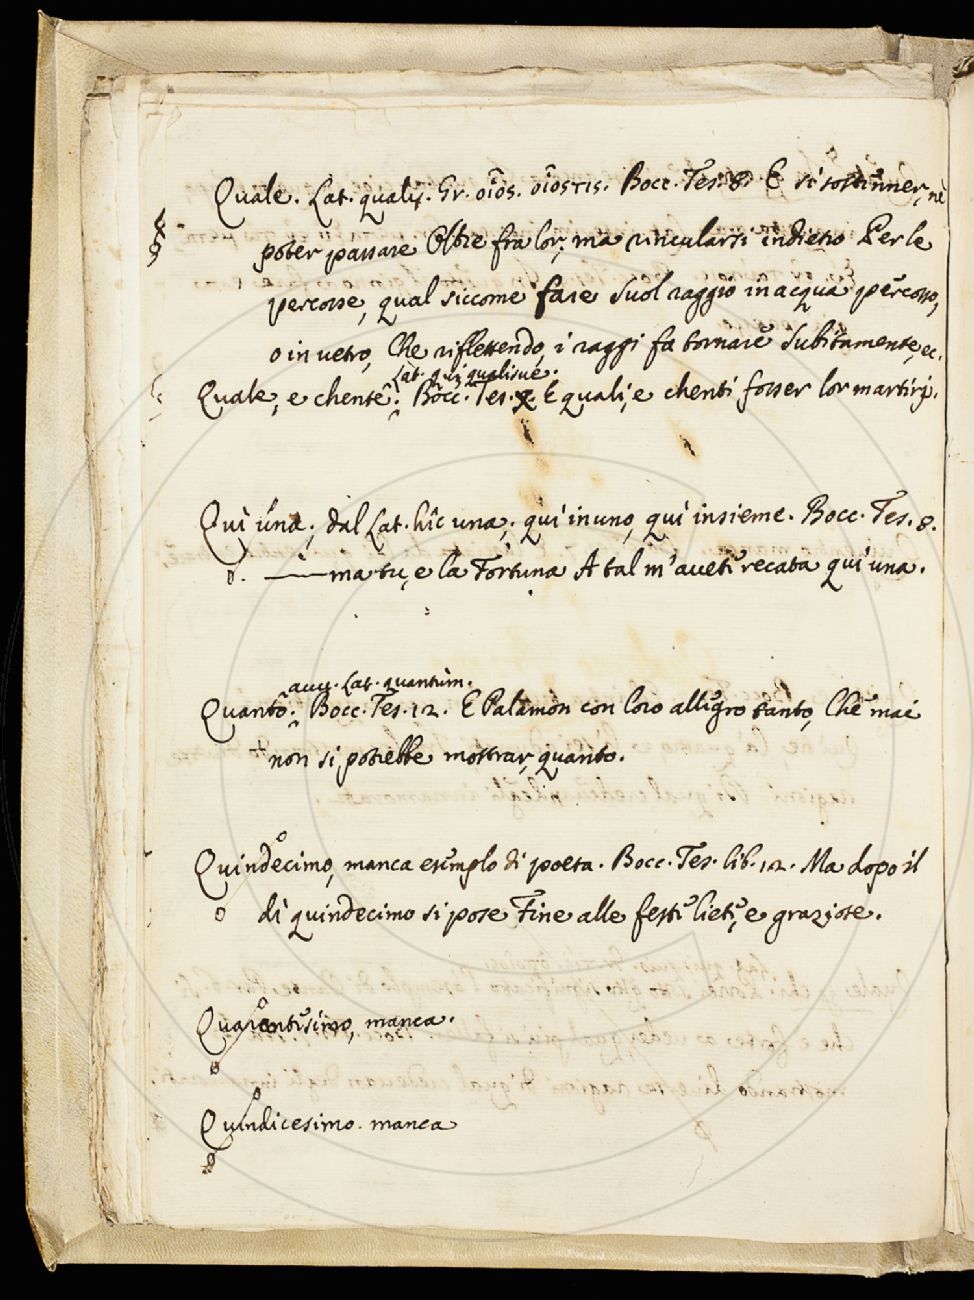 Quale. Lat. qualis. Gr. οἷος. ὁῖοστις. Bocc. Tes. 8. E si sostenner, nè
poter passare Oltre fra lor, ma rincularsi indietro Per le
percosse, qual siccome fare Suol raggio in acqua percosso,
o in vetro, Che riflettendo, i raggi fa tornare Subitamente, ec.
Lat. qui, qualisue.
Quale, e chente. Bocc. Tes. E quali, e chenti fosser lor martiri.
Qui una, dal Lat. hîc una, qui in uno, qui insieme. Bocc. Tes. 8.
ma tu, e la Fortuna A tal m'avete recata qui una.
avv. Lat. quantùm.
Quanto. Bocc. Tes. 12. E Palamon con loro allegro tanto, Che mai
non si potrebbe mostrar, quanto.
Quindecimo, manca esemplo di poeta. Bocc. Tes. lib. 12. Ma dopo il
dì quindecimo si pose Fine alle feste liete, e graziose.
Quarentesimo, manca.
Quindicesimo. manca